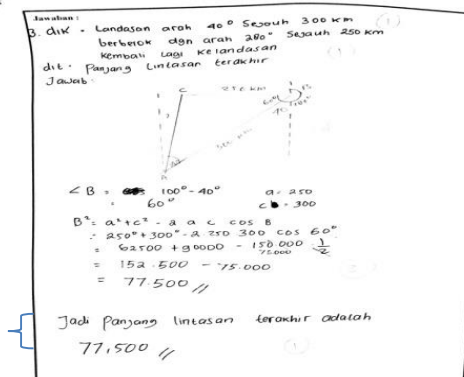 Jawaban :
3. dik • Landasan arah 40° Sejauh 300 km (1)
berbelok dgn arah 280° Sejauh 250 km
kembali Lagi ke landasan (1)
dit. Panjang Lintasan terakhir
Jawab
C 250 km B
60°
A
< B = 100° - 40° a = 250
= 60° c = 300
B² = a² + c² - 2 a c cos B
= 250° + 300° - 2.250.300 cos 60°
= 62500 + 90000 - 150.000 1/2
75.000
= 152.500 - 75.000
= 77.500 //
Jadi Panjang lintasan terakhir adalah
77,500 //
(1)